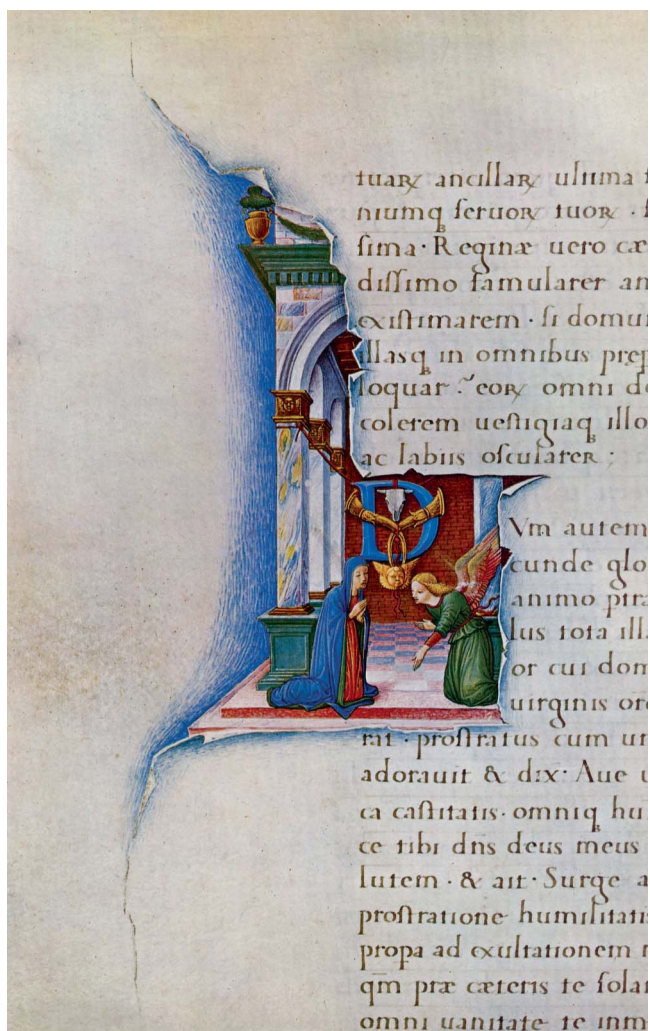 tuaꝝ ancillaꝝ ultima
niumqꝫ seruoꝝ tuoꝝ ·
sima · Reginæ uero cæ
dissimo famularer an
existimarem · si domui
illasqꝫ in omnibus pręp
loquar eoꝝ omni de
colerem uestigiaqꝫ illo
ac labiis oscularer :
D Vm autem
cunde glo
animo ptra
lus tota illa
or cui dom
uirginis orc
rat · prostratus cum ur
adorauit & dix · Aue u
ca castitatis · omniqꝫ hu
ce tibi dns deus meus
lutem · & ait · Surge a
prostratione humilitatis
propa ad exultationem
qm præ cæteris te solar
omni uanitate te inm